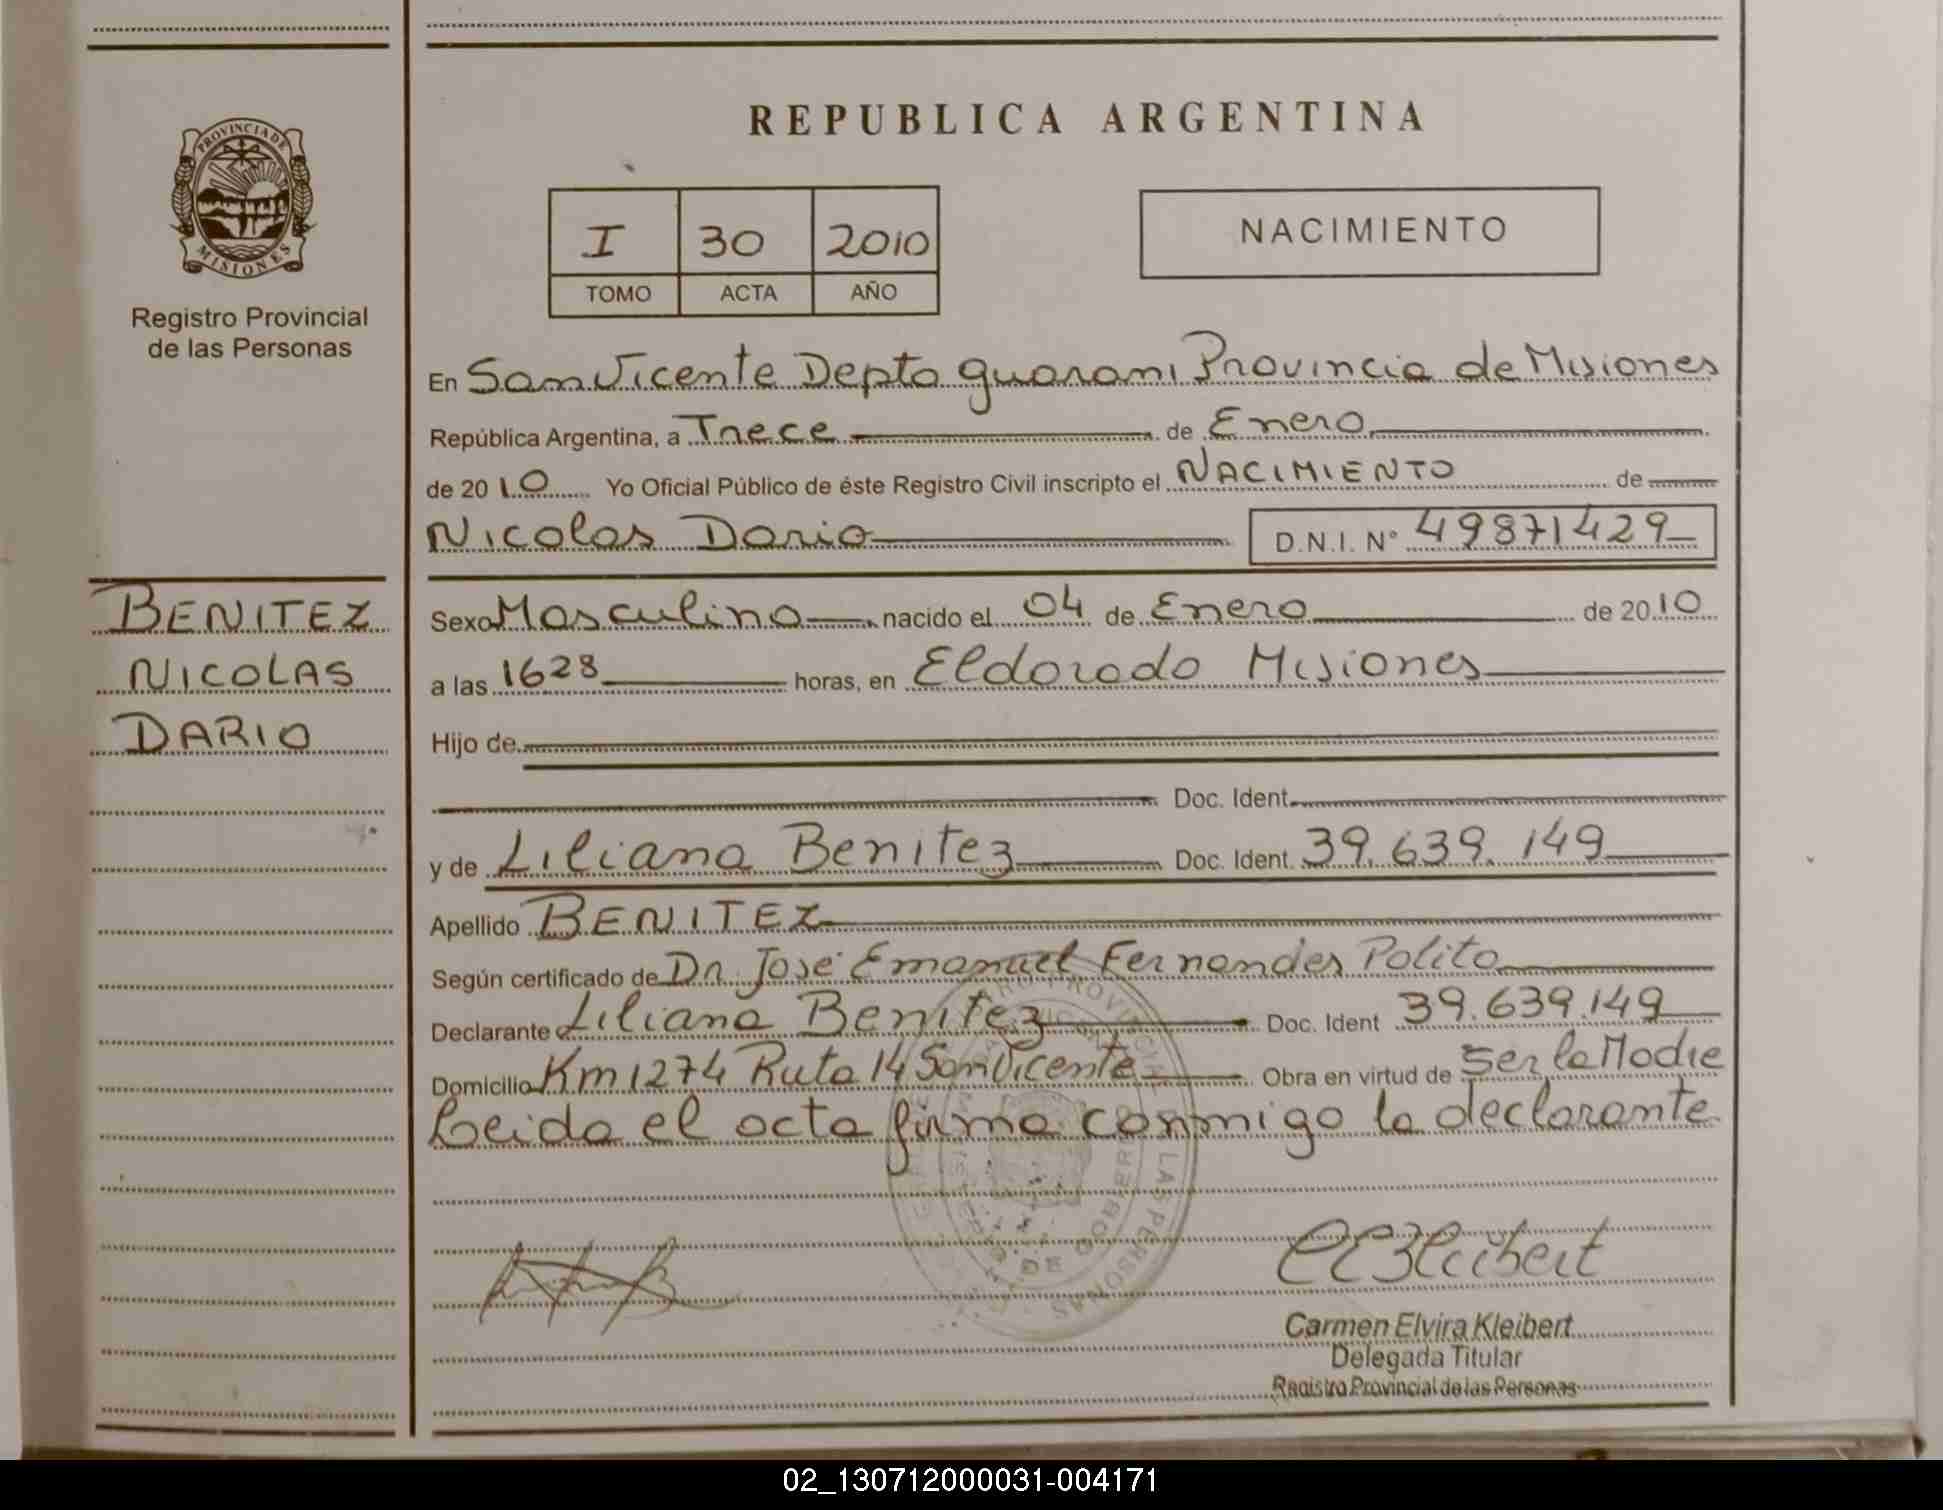 PROVINCIA DE
MISIONES
Registro Provincial
de las Personas
BENITEZ
NICOLAS
DARIO
REPUBLICA ARGENTINA
I 30 2010
TOMO ACTA AÑO
NACIMIENTO
En San Vicente Depto guarani Provincia de Misiones
República Argentina, a Trece de Enero
de 2010 Yo Oficial Público de éste Registro Civil inscripto el NACIMIENTO de
Nicolas Dario D.N.I. Nº 49871429
Sexo Masculino nacido el 04 de Enero de 2010
a las 1628 horas, en Eldorado Misiones
Hijo de
Doc. Ident.
y de Liliana Benitez Doc. Ident. 39.639.149
Apellido BENITEZ
Según certificado de Dr. José Emanuel Fernandes Polito
Declarante Liliana Benitez Doc. Ident 39.639.149
Domicilio Km 1274 Ruta 14 San Vicente Obra en virtud de ser la Madre
Leida el acta firma conmigo la declarante
CEKleibert
Carmen Elvira Kleibert
Delegada Titular
Registro Provincial de las Personas
02_130712000031-004171